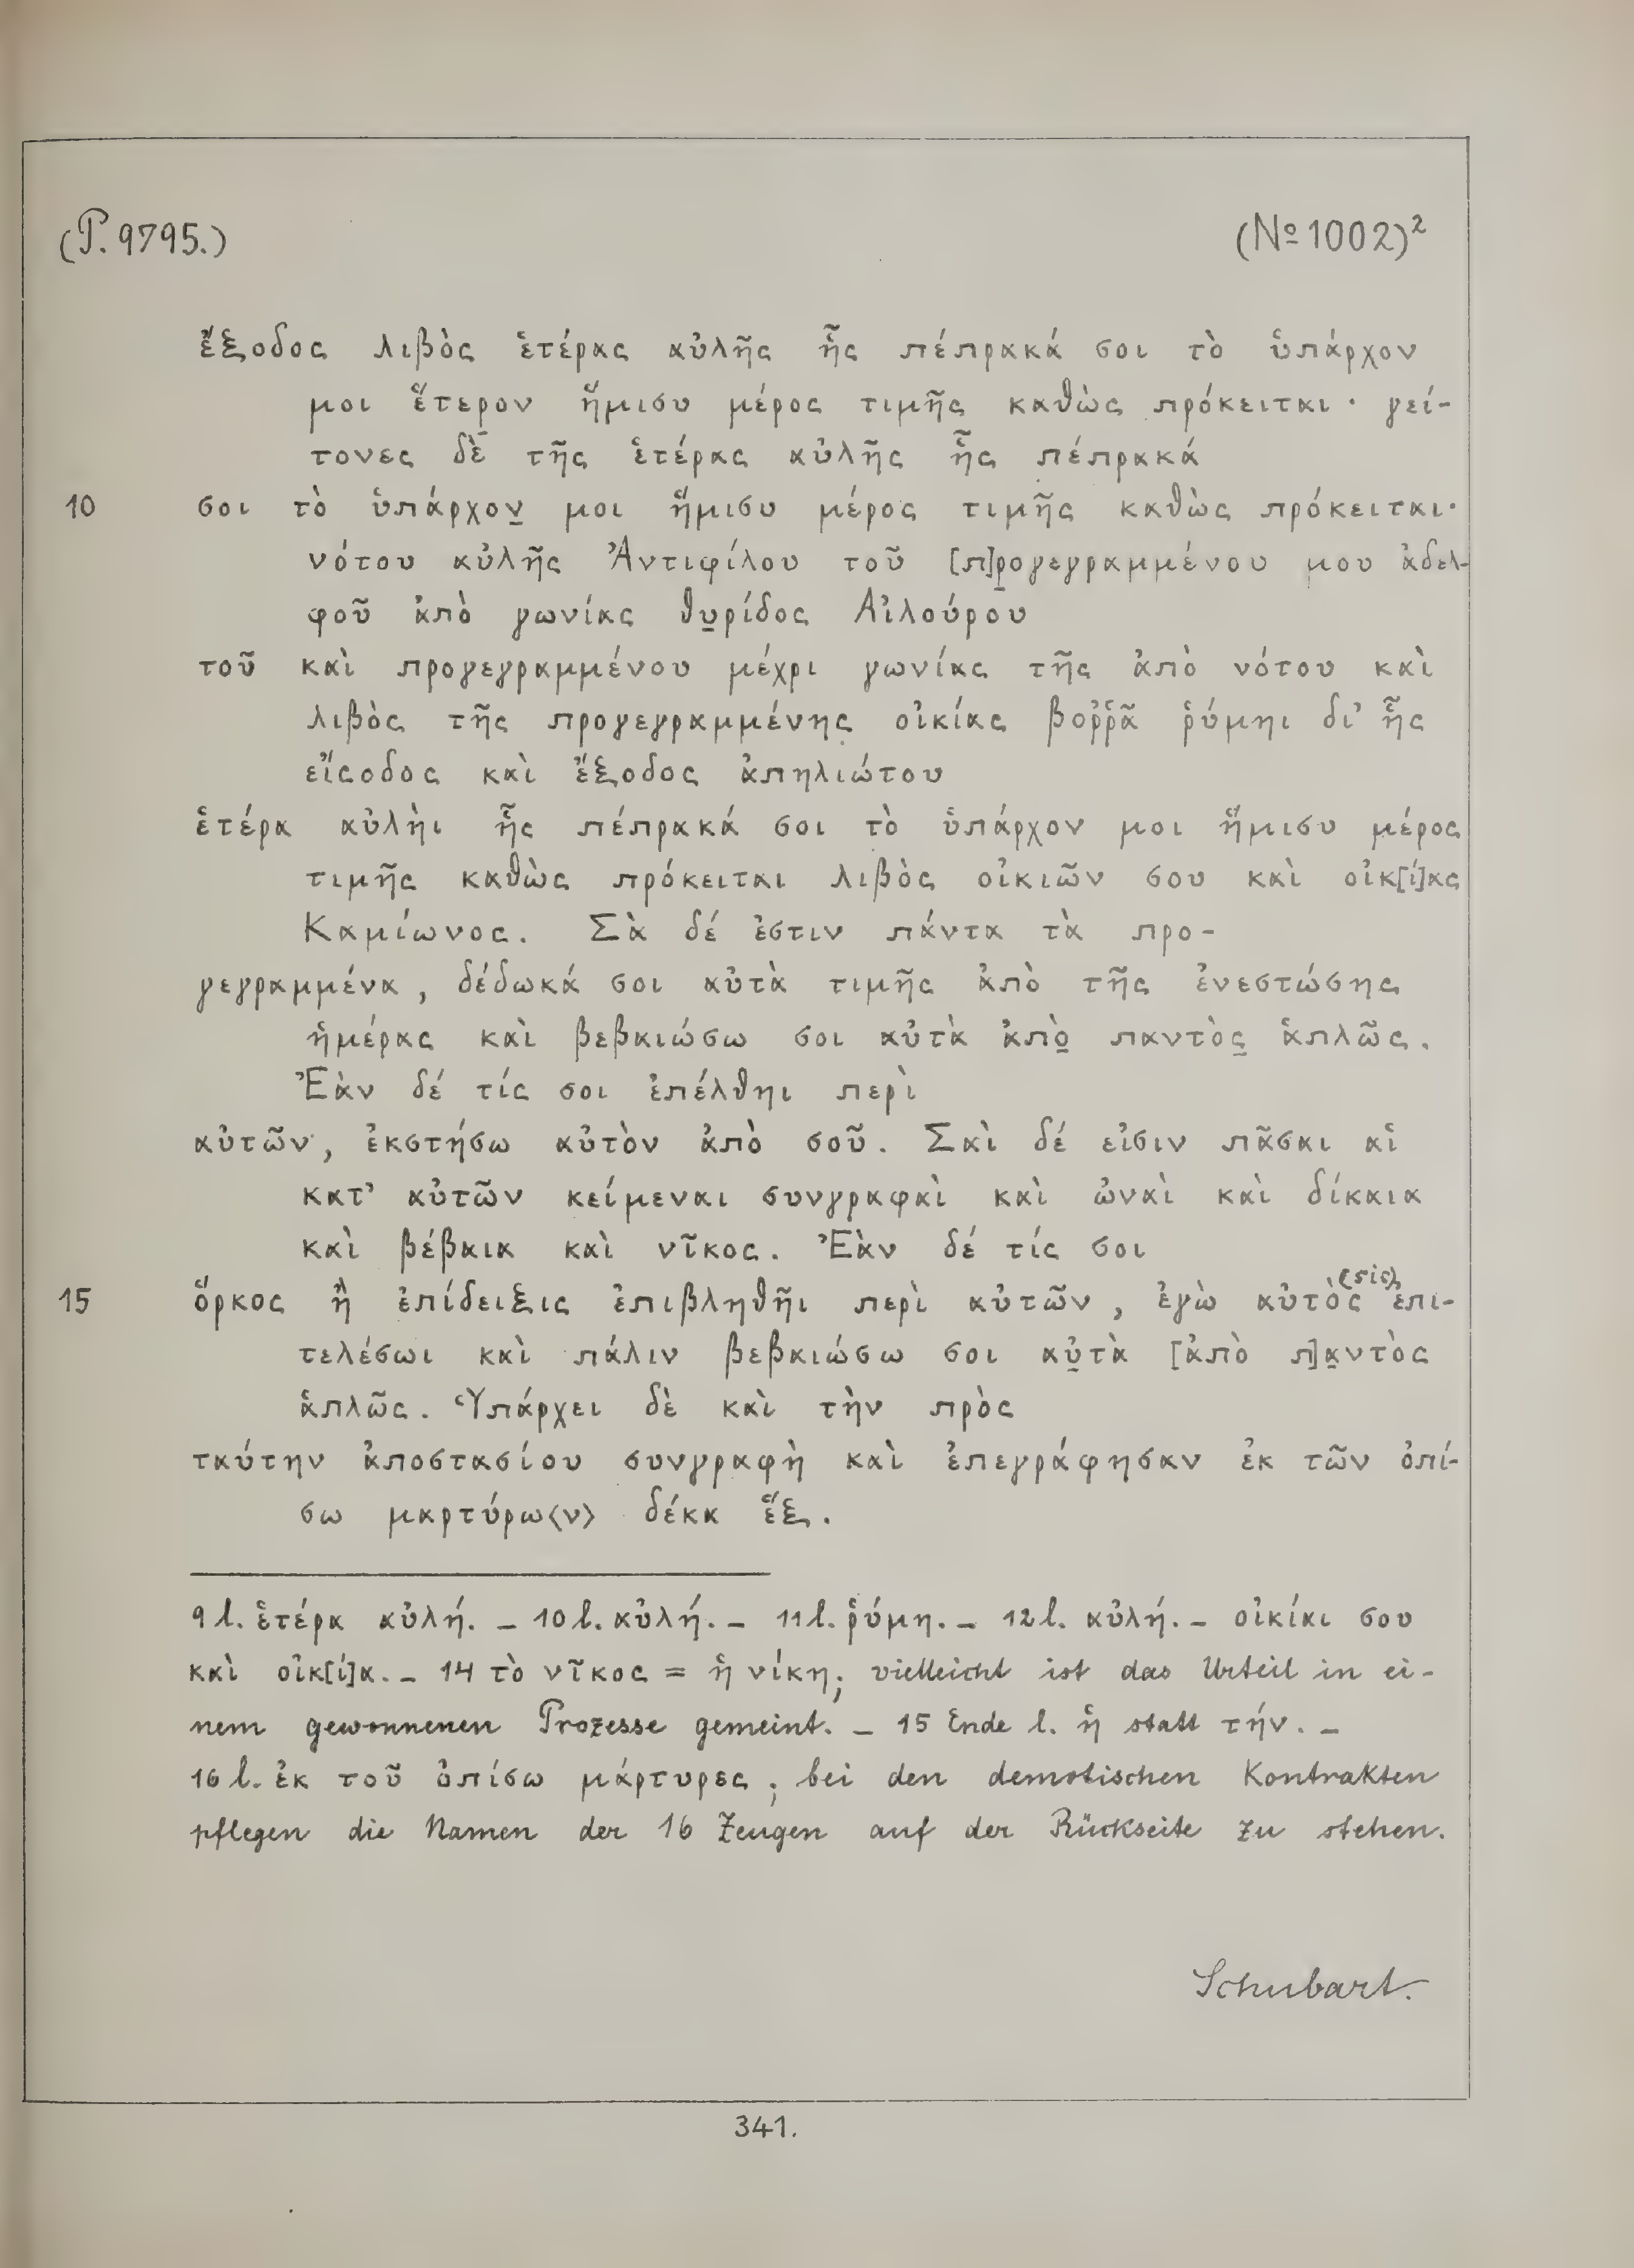 (P. 9795.) (№ 1002)²
ἔξοδος λιβὸς ἑτέρας αὐλῆς ἧς πέπρακά σοι τὸ ὑπάρχον
μοι ἕτερον ἥμισυ μέρος τιμῆς καθὼς πρόκειται· γεί-
τονες δὲ τῆς ἑτέρας αὐλῆς ἧς πέπρακά
10 σοι τὸ ὑπάρχον̣ μοι ἥμισυ μέρος τιμῆς καθὼς πρόκειται·
νότου αὐλῆς Ἀντιφίλου τοῦ [π]ρ̣ογεγραμμένου μου ἀδελ-
φοῦ ἀπὸ γωνίας θυ̣ρίδος Αἰλούρου
τοῦ καὶ προγεγραμμένου μέχρι γωνίας τῆς ἀπὸ νότου καὶ
λιβὸς τῆς προγεγραμμένης οἰκίας βοῤῥᾶ ῥύμηι δι' ἧς
εἴσοδος καὶ ἔξοδος ἀπηλιώτου
ἑτέρα αὐλὴι ἧς πέπρακά σοι τὸ ὑπάρχον μοι ἥμισυ μέρος
τιμῆς καθὼς πρόκειται λιβὸς οἰκιῶν σου καὶ οἰκ[ί]ας
Καμίωνος. Σὰ δέ ἐστιν πάντα τὰ προ-
γεγραμμένα, δέδωκά σοι αὐτὰ τιμῆς ἀπὸ τῆς ἐνεστώσης
ἡμέρας καὶ βεβαιώσω σοι αὐτὰ ἀπὸ̣ παντὸς̣ ἁπλῶς.
Ἐὰν δέ τίς σοι ἐπέλθηι περὶ
αὐτῶν, ἐκστήσω αὐτὸν ἀπὸ σοῦ. Σαὶ δέ εἰσιν πᾶσαι αἱ
κατ' αὐτῶν κείμεναι συνγραφαὶ καὶ ὠναὶ καὶ δίκαια
καὶ βέβαια καὶ νῖκος. Ἐὰν δέ τίς σοι
15 ὅρκος ἢ ἐπίδειξις ἐπιβληθῆι περὶ αὐτῶν, ἐγὼ αὐτὸς (sic) ἐπι-
τελέσωι καὶ πάλιν βεβαιώσω σοι αὐ̣τὰ [ἀπὸ π]α̣ντὸς
ἁπλῶς. Ὑπάρχει δὲ καὶ τὴν πρὸς
ταύτην ἀποστασίου συνγραφὴ καὶ ἐπεγράφησαν ἐκ τῶν ὀπί-
σω μαρτύρω⟨ν⟩ δέκα ἕξ.
9 l. ἑτέρα αὐλή. – 10 l. αὐλή. – 11 l. ῥύμη. – 12 l. αὐλή. – οἰκίαι σου
καὶ οἰκ[ί]α. – 14 τὸ νῖκος = ἡ νίκη; vielleicht ist das Urteil in ei-
nem gewonnenen Prozesse gemeint. – 15 Ende l. ἡ statt τήν. –
16 l. ἐκ τοῦ ὀπίσω μάρτυρες; bei den demotischen Kontrakten
pflegen die Namen der 16 Zeugen auf der Rückseite zu stehen.
Schubart.
341.